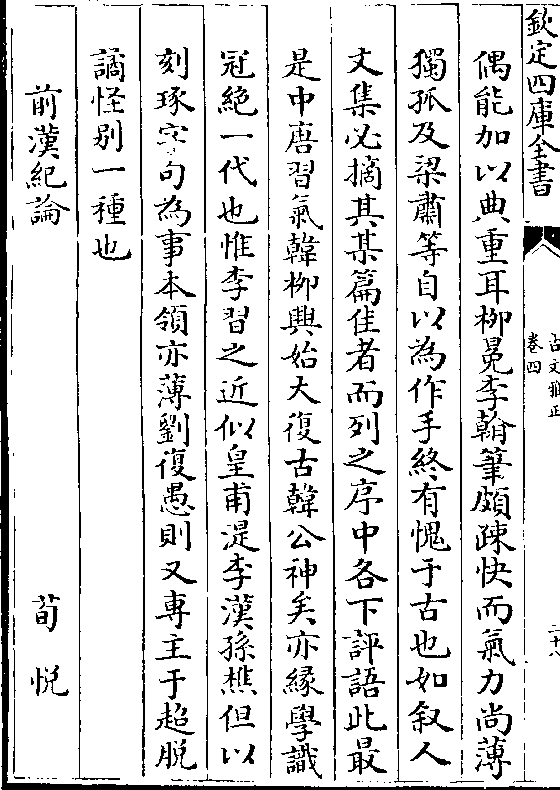 欽定四庫全書
古文雅正
卷四
二十八
偶能加以典重耳柳冕李翰筆頗疎快而氣力尚薄
獨孤及梁肅等自以為作手終有愧于古也如叙人
文集必摘其某篇佳者而列之序中各下評語此最
是中唐習氣韓柳興始大復古韓公神矣亦緣學識
冠絕一代也惟李習之近似皇甫湜李漢孫樵但以
刻琢字句為事本領亦薄劉復愚則又專主于超脱
譎怪别一種也
前漢紀論
荀悦